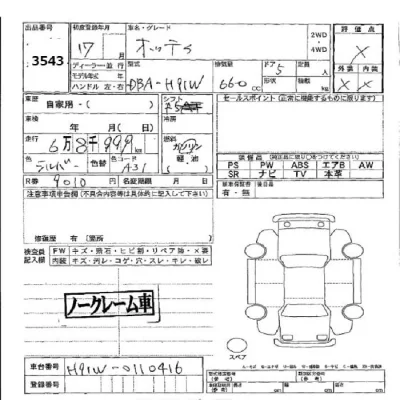 出品番号
3543
初度登録年月
17 年 月
車名・グレード
オッティ
2WD
4WD
評価点
X
ディーラー・並行
モデル年式 年
ハンドル 左・右
型式
DBA-H91W
排気量
660 cc
ドア
5
形状
積載量
kg
外装
内装
X
X
車歴
自家用・( )
シフト
F5
セールスポイント(正常に機能するものに限ります)
車検
年 月( 日)
冷房
走行
6万8千999 km
燃料
ガソリン
軽油
色
シルバー
色替
色コード
A31
装備品(純正品に限り○をつけてください)
PS PW ABS エアB AW
SR ナビ TV 本革
R券
9010 円
名変期限 月 日
車保証書
有・無
後日品
注意事項申告欄(不具合内容等は具体的に記入してください)
修復歴 有(箇所 )
検査員
記入欄
FW キズ・飛石・ヒビ割・リペア跡・X要
内装 キズ・汚レ・コゲ・穴・スレ・キレ・破レ
ノークレーム車
スペア
車台番号
H91W-0110416
登録番号
型式指定番号
(参考)
類別区分番号
(参考)
長 cm
幅 cm
高 cm